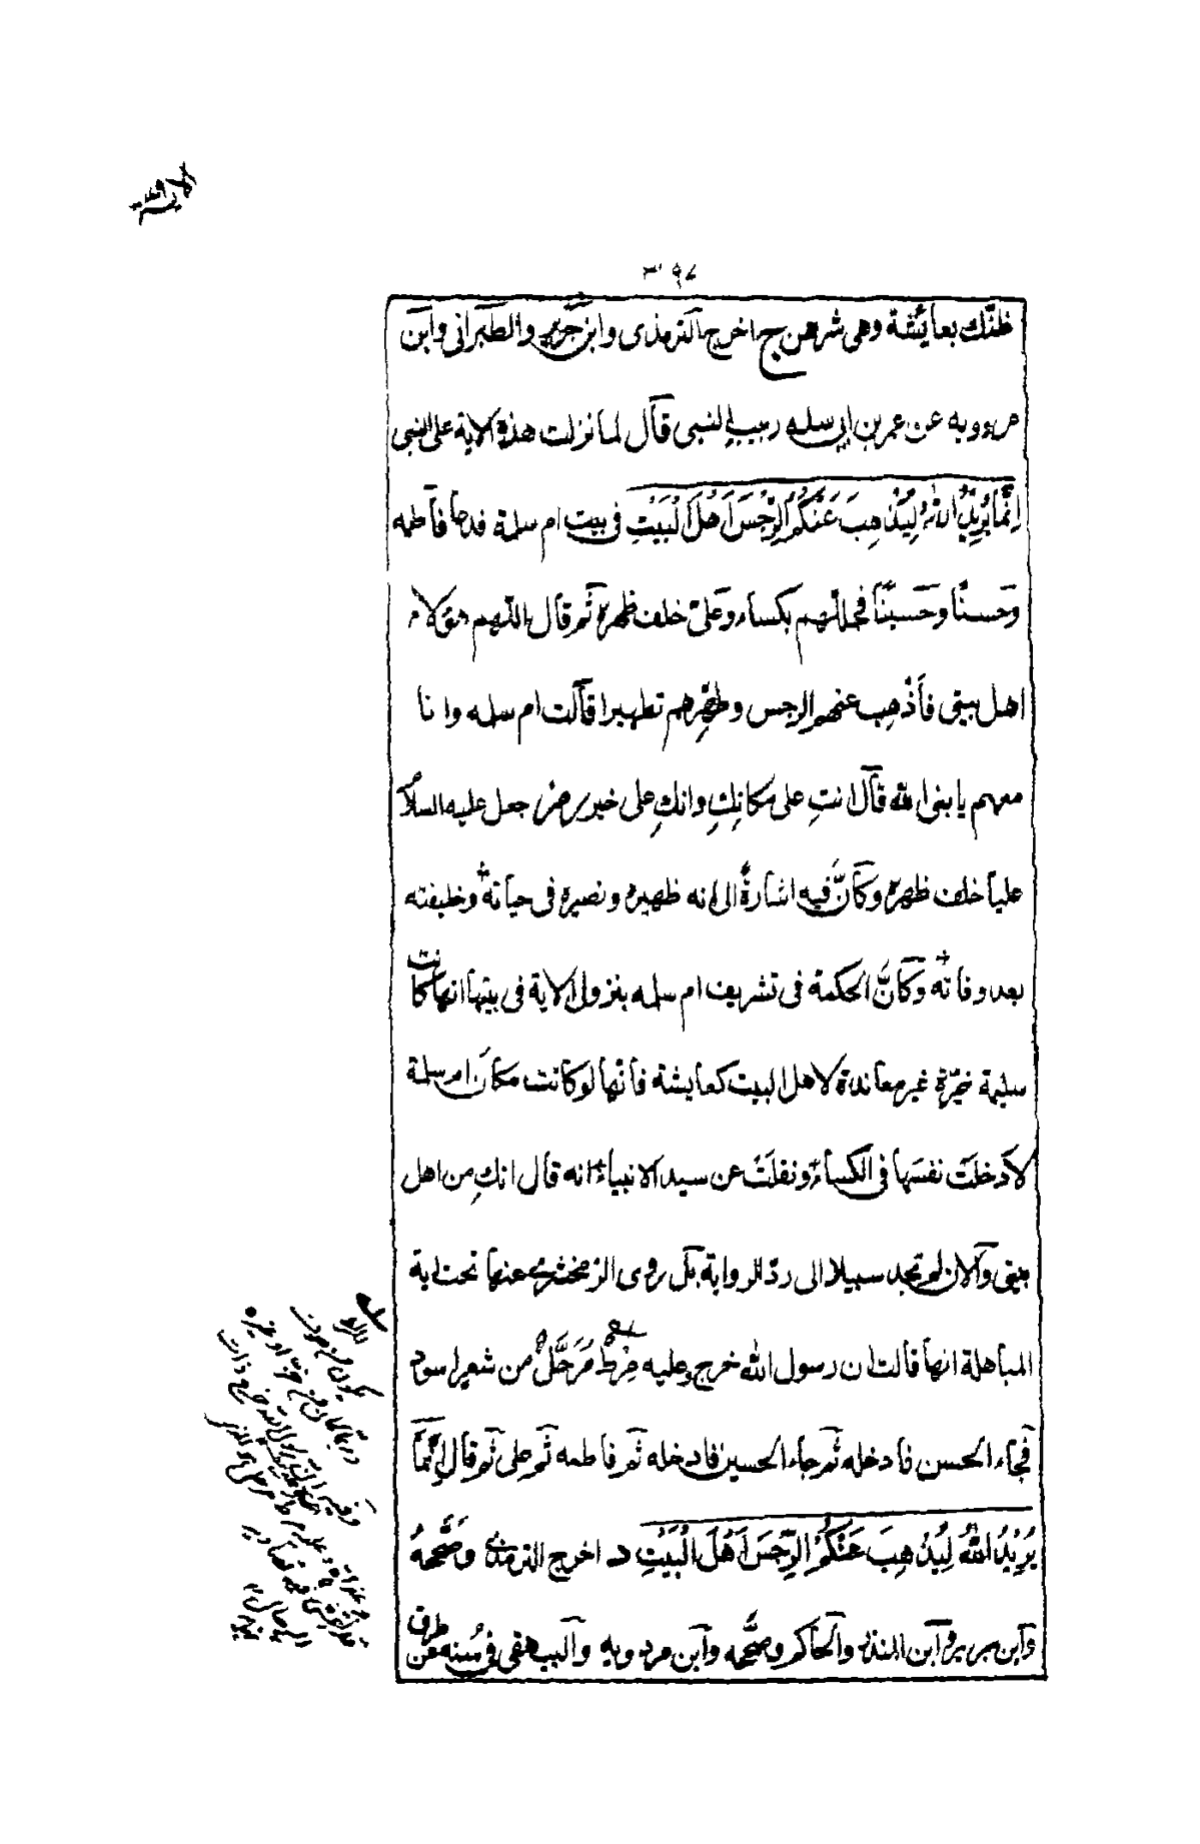 ٣٩٧
ظنّك بعايشة وهى شرهن ج اخرج الترمذى وابن جرير والطبرانى وابن
مردويه عن عمر بن ابى سلمه ربيب النبى قال لما نزلت هذه الاية على النبى
اِنَّمَا يُرِيْدُ اللّٰهُ لِيُذْهِبَ عَنْكُمُ الرِّجْسَ اَهْلَ الْبَيْتِ فى بيت ام سلمة فدعا فاطمه
وحسنًا وحسينًا فجللّهم بكساء وعلىّ خلف ظهره ثم قال اللّهم هؤلاء
اهل بيتى فأذهِب عنهم الرجس وطهِّرهم تطهيرا قالت ام سلمه وانا
معهم يا نبى الله قال انتِ على مكانِكِ وانكِ على خير جعل عليه السلام
عليا خلف ظهره وكأنَّ فيه اشارةً الى انه ظهيره ونصيره فى حياته وخليفته
بعد وفاته وكأنَّ الحكمة فى تشريف ام سلمه بنزول الاية فى بيتها انها كانت
سليمة خيّرة غير معاندة لاهل البيت كعايشة فانّها لو كانت مكان ام سلمة
لادخلَت نفسَها فى الكساء ونقلَت عن سيد الانبياء انه قال انكِ من اهل
بيتى والان لم تجد سبيلا الى ردّ الرواية بل روى الزمخشرى عنها تحت اية
المباهلة انها قالت ان رسول الله خرج وعليه مِرْطٌ مُرَحَّلٌ من شعر اسود
فجاء الحسن فادخله ثم جاء الحسين فادخله ثم فاطمه ثم على ثم قال اِنَّمَا
يُرِيْدُ اللّٰهُ لِيُذْهِبَ عَنْكُمُ الرِّجْسَ اَهْلَ الْبَيْتِ د اخرج الترمذى وصَحَّحهُ
وابن جرير وابن المنذر والحاكم وصحَّحه وابن مردويه والبيهقى فى سُننه من طرق